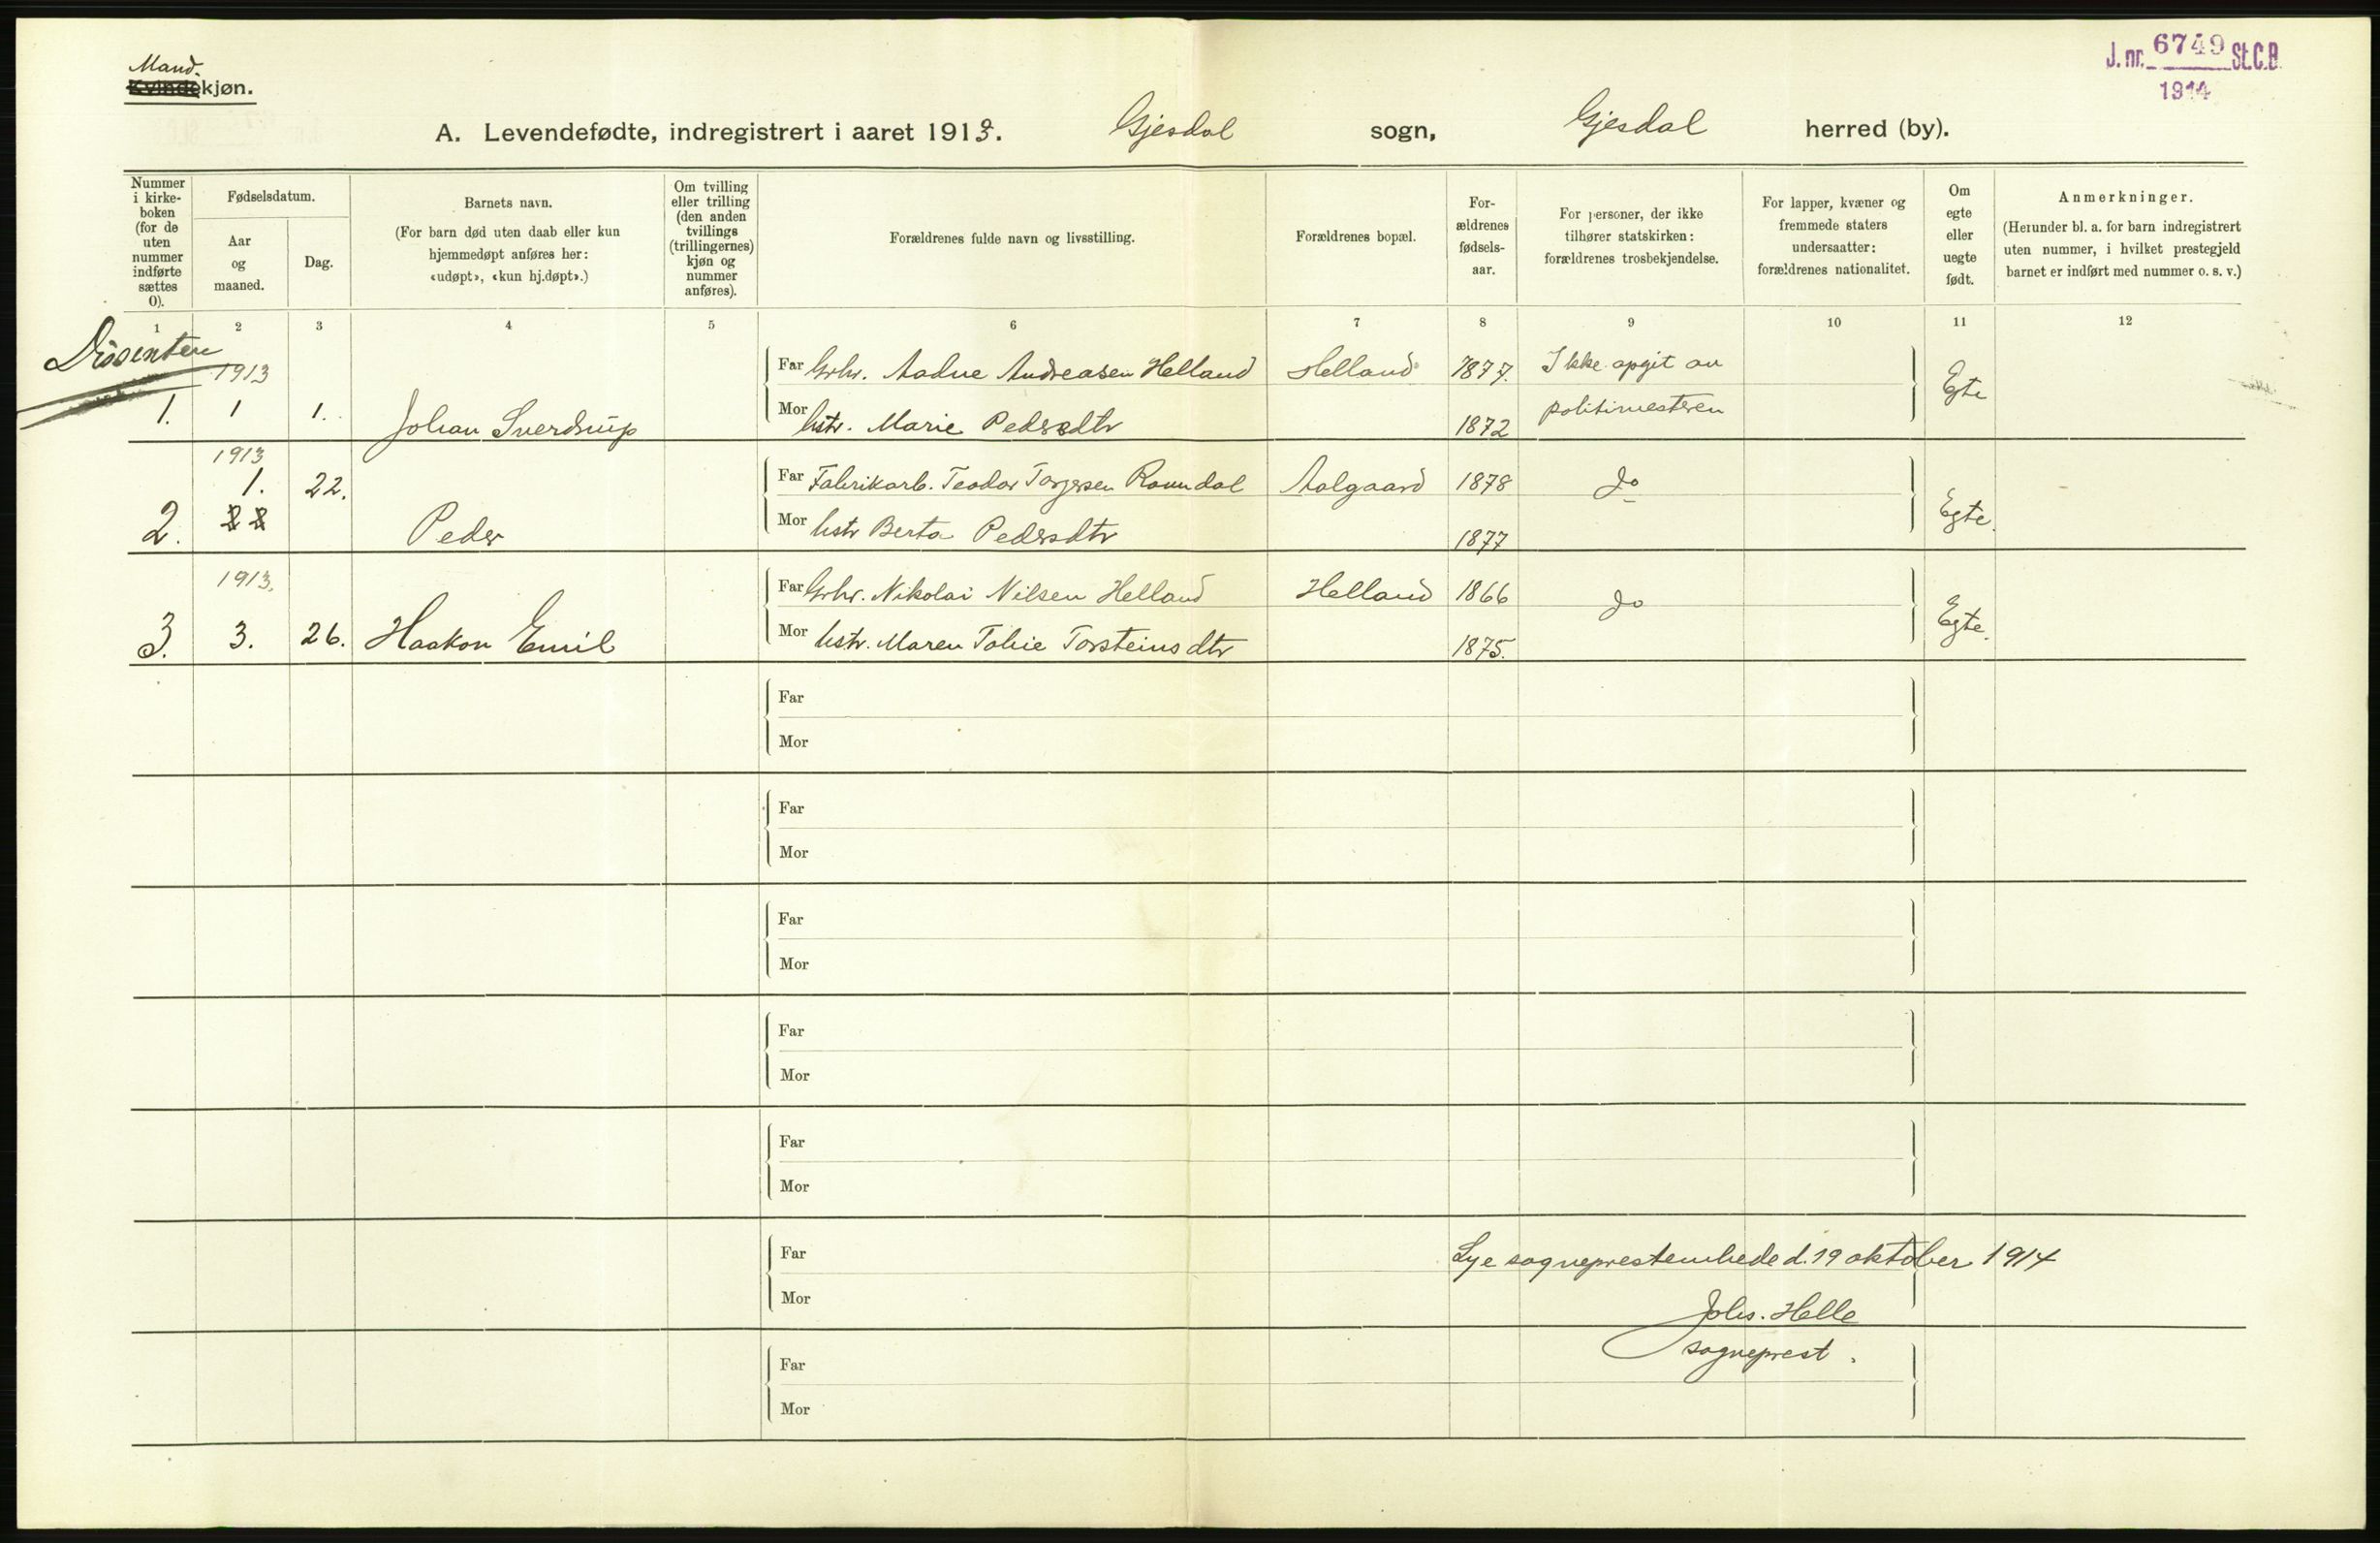 Mand.
Kvindekjøn.
J. nr. 6749 St.C.B.
1914
A. Levendefødte, indregistrert i aaret 1913. Gjesdal sogn, Gjesdal herred (by).
Nummer i kirkeboken (for de uten nummer indførte sættes 0).
Fødselsdatum.
Aar og maaned.
Dag.
Barnets navn.
(For barn død uten daab eller kun hjemmedøpt anføres her: «udøpt», «kun hj.døpt».)
Om tvilling eller trilling (den anden tvillings (trillingernes) kjøn og nummer anføres).
Forældrenes fulde navn og livsstilling.
Forældrenes bopæl.
Forældrenes fødselsaar.
For personer, der ikke tilhører statskirken: forældrenes trosbekjendelse.
For lapper, kvæner og fremmede staters undersaatter: forældrenes nationalitet.
Om egte eller uegte født.
Anmerkninger.
(Herunder bl. a. for barn indregistrert uten nummer, i hvilket prestegjeld barnet er indført med nummer o. s. v.)
1 2 3 4 5 6 7 8 9 10 11 12
Dissentere
1913
1. 1 1. Johan Sverdrup
Far Grbr. Aadne Andreasen Helland Helland 1877. Ikke opgit av
Mor hstr. Marie Pedersdtr 1872 politimesteren Egte
1913
1. 22.
2. Peder
Far Fabrikarb. Teodor Torgersen Ravndal Aalgaard 1878 do
Mor hstr Berta Pedersdtr 1877 Egte.
1913.
3. 3. 26. Haakon Emil
Far Grbr. Nikolai Nilsen Helland Helland 1866 do
Mor hstr. Maren Tobie Torsteinsdtr 1875. Egte.
Far
Mor
Far
Mor
Far
Mor
Far
Mor
Far
Mor
Far
Mor
Far
Mor
Lye sogneprestembede d. 19 oktober 1914
Johs. Helle
sogneprest.